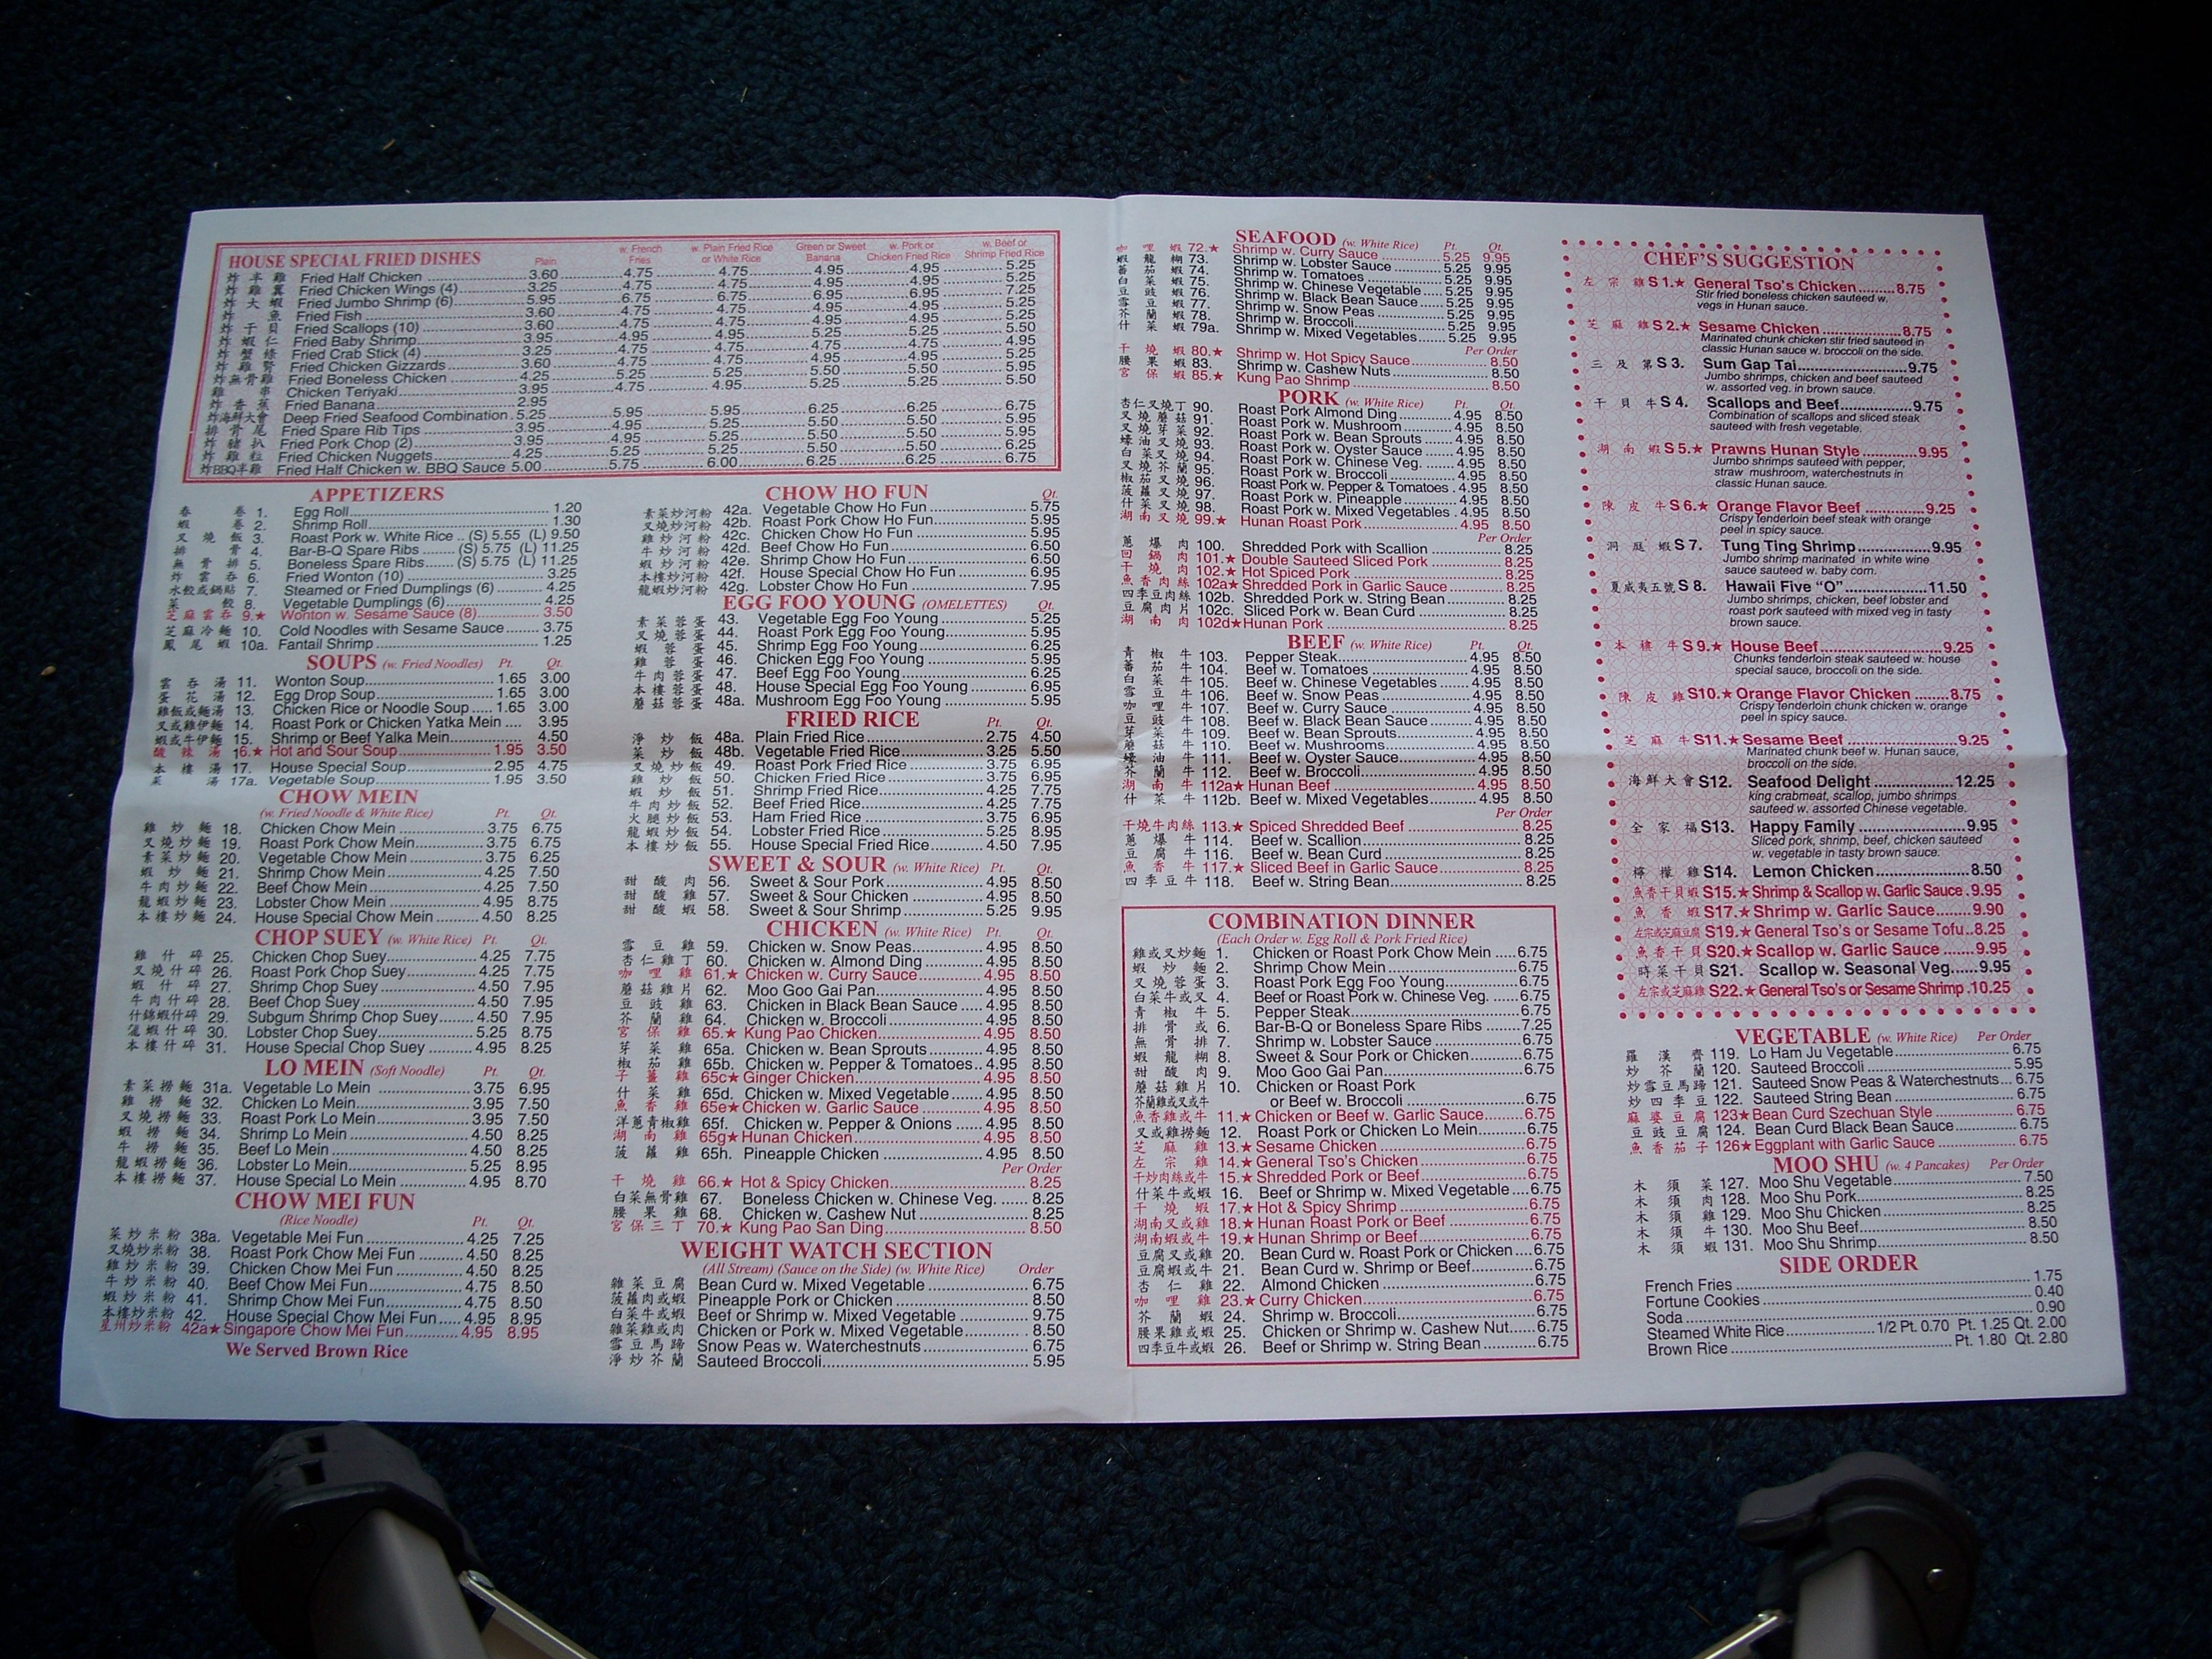 HOUSE SPECIAL FRIED DISHES Plain w. French Fries w. Plain Fried Rice or White Rice Green or Sweet Banana w. Pork or Chicken Fried Rice w. Beef or Shrimp Fried Rice
炸半雞 Fried Half Chicken 3.60 4.75 4.75 4.95 4.95 5.25
炸雞翼 Fried Chicken Wings (4) 3.25 4.75 4.75 4.95 4.95 5.25
炸大蝦 Fried Jumbo Shrimp (6) 5.95 6.75 6.75 6.95 6.95 7.25
炸魚 Fried Fish 3.60 4.75 4.75 4.95 4.95 5.25
炸干貝 Fried Scallops (10) 3.60 4.75 4.75 4.95 4.95 5.25
炸蝦仁 Fried Baby Shrimp 3.95 4.95 4.95 5.25 5.25 5.50
炸蟹條 Fried Crab Stick (4) 3.25 4.75 4.75 4.95 4.95 5.25
炸雞腎 Fried Chicken Gizzards 3.60 4.75 4.75 4.95 4.95 5.25
炸無骨雞 Fried Boneless Chicken 4.25 5.25 5.25 5.25 5.25 5.50
雞串 Chicken Teriyaki 3.95 4.75 4.95 5.25 5.25 5.50
炸香蕉 Fried Banana 2.95
炸海鮮大會 Deep Fried Seafood Combination 5.25 5.95 5.95 6.25 6.25 6.75
排骨尾 Fried Spare Rib Tips 3.95 4.95 5.25 5.50 5.50 5.95
炸豬扒 Fried Pork Chop (2) 3.95 4.95 5.25 5.50 5.50 5.95
炸雞粒 Fried Chicken Nuggets 4.25 5.25 5.25 5.50 5.50 6.25
炸BBQ半雞 Fried Half Chicken w. BBQ Sauce 5.00 5.75 6.00 6.25 6.25 6.75
APPETIZERS
春卷 1. Egg Roll 1.20
蝦卷 2. Shrimp Roll 1.30
叉燒飯 3. Roast Pork w. White Rice .. (S) 5.55 (L) 9.50
排骨 4. Bar-B-Q Spare Ribs (S) 5.75 (L) 11.25
無骨排 5. Boneless Spare Ribs (S) 5.75 (L) 11.25
炸雲吞 6. Fried Wonton (10) 3.25
水餃或鍋貼 7. Steamed or Fried Dumplings (6) 4.25
菜餃 8. Vegetable Dumplings (6) 4.25
芝麻雲吞 9.★ Wonton w. Sesame Sauce (8) 3.50
芝麻冷麵 10. Cold Noodles with Sesame Sauce 3.75
鳳尾蝦 10a. Fantail Shrimp 1.25
SOUPS (w. Fried Noodles) Pt. Qt.
雲吞湯 11. Wonton Soup 1.65 3.00
蛋花湯 12. Egg Drop Soup 1.65 3.00
雞飯或麵湯 13. Chicken Rice or Noodle Soup 1.65 3.00
叉或雞伊麵 14. Roast Pork or Chicken Yatka Mein 3.95
蝦或牛伊麵 15. Shrimp or Beef Yalka Mein 4.50
酸辣湯 16.★ Hot and Sour Soup 1.95 3.50
本樓湯 17. House Special Soup 2.95 4.75
菜湯 17a. Vegetable Soup 1.95 3.50
CHOW MEIN
(w. Fried Noodle & White Rice) Pt. Qt.
雞炒麵 18. Chicken Chow Mein 3.75 6.75
叉燒炒麵 19. Roast Pork Chow Mein 3.75 6.75
素菜炒麵 20. Vegetable Chow Mein 3.75 6.25
蝦炒麵 21. Shrimp Chow Mein 4.25 7.50
牛肉炒麵 22. Beef Chow Mein 4.25 7.50
龍蝦炒麵 23. Lobster Chow Mein 4.95 8.75
本樓炒麵 24. House Special Chow Mein 4.50 8.25
CHOP SUEY (w. White Rice) Pt. Qt.
雞什碎 25. Chicken Chop Suey 4.25 7.75
叉燒什碎 26. Roast Pork Chop Suey 4.25 7.75
蝦什碎 27. Shrimp Chop Suey 4.50 7.95
牛肉什碎 28. Beef Chop Suey 4.50 7.95
什錦蝦什碎 29. Subgum Shrimp Chop Suey 4.50 7.95
龍蝦什碎 30. Lobster Chop Suey 5.25 8.75
本樓什碎 31. House Special Chop Suey 4.95 8.25
LO MEIN (Soft Noodle) Pt. Qt.
素菜撈麵 31a. Vegetable Lo Mein 3.75 6.95
雞撈麵 32. Chicken Lo Mein 3.95 7.50
叉燒撈麵 33. Roast Pork Lo Mein 3.95 7.50
蝦撈麵 34. Shrimp Lo Mein 4.50 8.25
牛撈麵 35. Beef Lo Mein 4.50 8.25
龍蝦撈麵 36. Lobster Lo Mein 5.25 8.95
本樓撈麵 37. House Special Lo Mein 4.95 8.70
CHOW MEI FUN
(Rice Noodle) Pt. Qt.
菜炒米粉 38a. Vegetable Mei Fun 4.25 7.25
叉燒炒米粉 38. Roast Pork Chow Mei Fun 4.50 8.25
雞炒米粉 39. Chicken Chow Mei Fun 4.50 8.25
牛炒米粉 40. Beef Chow Mei Fun 4.75 8.50
蝦炒米粉 41. Shrimp Chow Mei Fun 4.75 8.50
本樓炒米粉 42. House Special Chow Mei Fun 4.95 8.95
星州炒米粉 42a★ Singapore Chow Mei Fun 4.95 8.95
We Served Brown Rice
CHOW HO FUN Qt.
素菜炒河粉 42a. Vegetable Chow Ho Fun 5.75
叉燒炒河粉 42b. Roast Pork Chow Ho Fun 5.95
雞炒河粉 42c. Chicken Chow Ho Fun 5.95
牛炒河粉 42d. Beef Chow Ho Fun 6.50
蝦炒河粉 42e. Shrimp Chow Ho Fun 6.50
本樓炒河粉 42f. House Special Chow Ho Fun 6.95
龍蝦炒河粉 42g. Lobster Chow Ho Fun 7.95
EGG FOO YOUNG (OMELETTES) Qt.
素菜蓉蛋 43. Vegetable Egg Foo Young 5.25
叉燒蓉蛋 44. Roast Pork Egg Foo Young 5.95
蝦蓉蛋 45. Shrimp Egg Foo Young 6.25
雞蓉蛋 46. Chicken Egg Foo Young 5.95
牛肉蓉蛋 47. Beef Egg Foo Young 6.25
本樓蓉蛋 48. House Special Egg Foo Young 6.95
蘑菇蓉蛋 48a. Mushroom Egg Foo Young 5.95
FRIED RICE Pt. Qt.
淨炒飯 48a. Plain Fried Rice 2.75 4.50
菜炒飯 48b. Vegetable Fried Rice 3.25 5.50
叉燒炒飯 49. Roast Pork Fried Rice 3.75 6.95
雞炒飯 50. Chicken Fried Rice 3.75 6.95
蝦炒飯 51. Shrimp Fried Rice 4.25 7.75
牛肉炒飯 52. Beef Fried Rice 4.25 7.75
火腿炒飯 53. Ham Fried Rice 3.75 6.95
龍蝦炒飯 54. Lobster Fried Rice 5.25 8.95
本樓炒飯 55. House Special Fried Rice 4.50 7.95
SWEET & SOUR (w. White Rice) Pt. Qt.
甜酸肉 56. Sweet & Sour Pork 4.95 8.50
甜酸雞 57. Sweet & Sour Chicken 4.95 8.50
甜酸蝦 58. Sweet & Sour Shrimp 5.25 9.95
CHICKEN (w. White Rice) Pt. Qt.
雪豆雞 59. Chicken w. Snow Peas 4.95 8.50
杏仁雞丁 60. Chicken w. Almond Ding 4.95 8.50
咖哩雞 61.★ Chicken w. Curry Sauce 4.95 8.50
蘑菇雞片 62. Moo Goo Gai Pan 4.95 8.50
豆豉雞 63. Chicken in Black Bean Sauce 4.95 8.50
芥蘭雞 64. Chicken w. Broccoli 4.95 8.50
宮保雞 65.★ Kung Pao Chicken 4.95 8.50
芽菜雞 65a. Chicken w. Bean Sprouts 4.95 8.50
椒茄雞 65b. Chicken w. Pepper & Tomatoes 4.95 8.50
子薑雞 65c★ Ginger Chicken 4.95 8.50
什菜雞 65d. Chicken w. Mixed Vegetable 4.95 8.50
魚香雞 65e★ Chicken w. Garlic Sauce 4.95 8.50
洋蔥青椒雞 65f. Chicken w. Pepper & Onions 4.95 8.50
湖南雞 65g★ Hunan Chicken 4.95 8.50
菠蘿雞 65h. Pineapple Chicken 4.95 8.50
Per Order
干燒雞 66.★ Hot & Spicy Chicken 8.25
白菜無骨雞 67. Boneless Chicken w. Chinese Veg. 8.25
腰果雞 68. Chicken w. Cashew Nut 8.25
宮保三丁 70.★ Kung Pao San Ding 8.50
WEIGHT WATCH SECTION
(All Stream) (Sauce on the Side) (w. White Rice) Order
雜菜豆腐 Bean Curd w. Mixed Vegetable 6.75
菠蘿肉或雞 Pineapple Pork or Chicken 8.50
白菜牛或蝦 Beef or Shrimp w. Mixed Vegetable 9.75
雜菜雞或肉 Chicken or Pork w. Mixed Vegetable 8.50
雪豆馬蹄 Snow Peas w. Waterchestnuts 6.75
淨炒芥蘭 Sauteed Broccoli 5.95
SEAFOOD (w. White Rice) Pt. Qt.
咖哩蝦 72.★ Shrimp w. Curry Sauce 5.25 9.95
蝦龍糊 73. Shrimp w. Lobster Sauce 5.25 9.95
蕃茄蝦 74. Shrimp w. Tomatoes 5.25 9.95
白菜蝦 75. Shrimp w. Chinese Vegetable 5.25 9.95
豆豉蝦 76. Shrimp w. Black Bean Sauce 5.25 9.95
雪豆蝦 77. Shrimp w. Snow Peas 5.25 9.95
芥蘭蝦 78. Shrimp w. Broccoli 5.25 9.95
什菜蝦 79a. Shrimp w. Mixed Vegetables 5.25 9.95
Per Order
干燒蝦 80.★ Shrimp w. Hot Spicy Sauce 8.50
腰果蝦 83. Shrimp w. Cashew Nuts 8.50
宮保蝦 85.★ Kung Pao Shrimp 8.50
PORK (w. White Rice) Pt. Qt.
杏仁叉燒丁 90. Roast Pork Almond Ding 4.95 8.50
叉燒蘑菇 91. Roast Pork w. Mushroom 4.95 8.50
叉燒芽菜 92. Roast Pork w. Bean Sprouts 4.95 8.50
蠔油叉燒 93. Roast Pork w. Oyster Sauce 4.95 8.50
白菜叉燒 94. Roast Pork w. Chinese Veg. 4.95 8.50
叉燒芥蘭 95. Roast Pork w. Broccoli 4.95 8.50
椒茄叉燒 96. Roast Pork w. Pepper & Tomatoes 4.95 8.50
菠蘿叉燒 97. Roast Pork w. Pineapple 4.95 8.50
什菜叉燒 98. Roast Pork w. Mixed Vegetables 4.95 8.50
湖南叉燒 99.★ Hunan Roast Pork 4.95 8.50
Per Order
蔥爆肉 100. Shredded Pork with Scallion 8.25
回鍋肉 101.★ Double Sauteed Sliced Pork 8.25
干燒肉 102.★ Hot Spiced Pork 8.25
魚香肉絲 102a★ Shredded Pork in Garlic Sauce 8.25
四季豆肉絲 102b. Shredded Pork w. String Bean 8.25
豆腐肉片 102c. Sliced Pork w. Bean Curd 8.25
湖南肉 102d★ Hunan Pork 8.25
BEEF (w. White Rice) Pt. Qt.
青椒牛 103. Pepper Steak 4.95 8.50
蕃茄牛 104. Beef w. Tomatoes 4.95 8.50
白菜牛 105. Beef w. Chinese Vegetables 4.95 8.50
雪豆牛 106. Beef w. Snow Peas 4.95 8.50
咖哩牛 107. Beef w. Curry Sauce 4.95 8.50
豆豉牛 108. Beef w. Black Bean Sauce 4.95 8.50
芽菜牛 109. Beef w. Bean Sprouts 4.95 8.50
蘑菇牛 110. Beef w. Mushrooms 4.95 8.50
蠔油牛 111. Beef w. Oyster Sauce 4.95 8.50
芥蘭牛 112. Beef w. Broccoli 4.95 8.50
湖南牛 112a★ Hunan Beef 4.95 8.50
什菜牛 112b. Beef w. Mixed Vegetables 4.95 8.50
Per Order
干燒牛肉絲 113.★ Spiced Shredded Beef 8.25
蔥爆牛 114. Beef w. Scallion 8.25
豆腐牛 116. Beef w. Bean Curd 8.25
魚香牛 117.★ Sliced Beef in Garlic Sauce 8.25
四季豆牛 118. Beef w. String Bean 8.25
COMBINATION DINNER
(Each Order w. Egg Roll & Pork Fried Rice)
雞或叉炒麵 1. Chicken or Roast Pork Chow Mein 6.75
蝦炒麵 2. Shrimp Chow Mein 6.75
叉燒蓉蛋 3. Roast Pork Egg Foo Young 6.75
白菜牛或叉 4. Beef or Roast Pork w. Chinese Veg. 6.75
青椒牛 5. Pepper Steak 6.75
排骨或 6. Bar-B-Q or Boneless Spare Ribs 7.25
無骨排 7. Shrimp w. Lobster Sauce 6.75
蝦龍糊 8. Sweet & Sour Pork or Chicken 6.75
甜酸肉 9. Moo Goo Gai Pan 6.75
蘑菇雞片 10. Chicken or Roast Pork
芥蘭雞或叉或牛 or Beef w. Broccoli 6.75
魚香雞或牛 11.★ Chicken or Beef w. Garlic Sauce 6.75
叉或雞撈麵 12. Roast Pork or Chicken Lo Mein 6.75
芝麻雞 13.★ Sesame Chicken 6.75
左宗雞 14.★ General Tso's Chicken 6.75
干炒肉絲或牛 15.★ Shredded Pork or Beef 6.75
什菜牛或蝦 16. Beef or Shrimp w. Mixed Vegetable 6.75
干燒蝦 17.★ Hot & Spicy Shrimp 6.75
湖南叉或雞 18.★ Hunan Roast Pork or Beef 6.75
湖南蝦或牛 19.★ Hunan Shrimp or Beef 6.75
豆腐叉或雞 20. Bean Curd w. Roast Pork or Chicken 6.75
豆腐蝦或牛 21. Bean Curd w. Shrimp or Beef 6.75
杏仁雞 22. Almond Chicken 6.75
咖哩雞 23.★ Curry Chicken 6.75
芥蘭蝦 24. Shrimp w. Broccoli 6.75
腰果雞或蝦 25. Chicken or Shrimp w. Cashew Nut 6.75
四季豆牛或蝦 26. Beef or Shrimp w. String Bean 6.75
CHEF'S SUGGESTION
左宗雞 S 1.★ General Tso's Chicken 8.75
Stir fried boneless chicken sauteed w.
vegs in Hunan sauce.
芝麻雞 S 2.★ Sesame Chicken 8.75
Marinated chunk chicken stir fried sauteed in
classic Hunan sauce w. broccoli on the side.
三及第 S 3. Sum Gap Tai 9.75
Jumbo shrimps, chicken and beef sauteed
w. assorted veg. in brown sauce.
干貝牛 S 4. Scallops and Beef 9.75
Combination of scallops and sliced steak
sauteed with fresh vegetable.
湖南蝦 S 5.★ Prawns Hunan Style 9.95
Jumbo shrimps sauteed with pepper,
straw mushroom, waterchestnuts in
classic Hunan sauce.
陳皮牛 S 6.★ Orange Flavor Beef 9.25
Crispy tenderloin beef steak with orange
peel in spicy sauce.
洞庭蝦 S 7. Tung Ting Shrimp 9.95
Jumbo shrimp marinated in white wine
sauce sauteed w. baby corn.
夏威夷五號 S 8. Hawaii Five "O" 11.50
Jumbo shrimps, chicken, beef lobster and
roast pork sauteed with mixed veg in tasty
brown sauce.
本樓牛 S 9.★ House Beef 9.25
Chunks tenderloin steak sauteed w. house
special sauce, broccoli on the side.
陳皮雞 S10.★ Orange Flavor Chicken 8.75
Crispy tenderloin chunk chicken w. orange
peel in spicy sauce.
芝麻牛 S11.★ Sesame Beef 9.25
Marinated chunk beef w. Hunan sauce,
broccoli on the side.
海鮮大會 S12. Seafood Delight 12.25
king crabmeat, scallop, jumbo shrimps
sauteed w. assorted Chinese vegetable.
全家福 S13. Happy Family 9.95
Sliced pork, shrimp, beef, chicken sauteed
w. vegetable in tasty brown sauce.
檸檬雞 S14. Lemon Chicken 8.50
魚香干貝蝦 S15.★ Shrimp & Scallop w. Garlic Sauce 9.95
魚香蝦 S17.★ Shrimp w. Garlic Sauce 9.90
左宗或芝麻豆腐 S19.★ General Tso's or Sesame Tofu 8.25
魚香干貝 S20.★ Scallop w. Garlic Sauce 9.95
時菜干貝 S21. Scallop w. Seasonal Veg. 9.95
左宗或芝麻雞 S22.★ General Tso's or Sesame Shrimp 10.25
VEGETABLE (w. White Rice) Per Order
羅漢齊 119. Lo Ham Ju Vegetable 6.75
炒芥蘭 120. Sauteed Broccoli 5.95
炒雪豆馬蹄 121. Sauteed Snow Peas & Waterchestnuts 6.75
炒四季豆 122. Sauteed String Bean 6.75
麻婆豆腐 123★ Bean Curd Szechuan Style 6.75
豆豉豆腐 124. Bean Curd Black Bean Sauce 6.75
魚香茄子 126★ Eggplant with Garlic Sauce 6.75
MOO SHU (w. 4 Pancakes) Per Order
木須菜 127. Moo Shu Vegetable 7.50
木須肉 128. Moo Shu Pork 8.25
木須雞 129. Moo Shu Chicken 8.25
木須牛 130. Moo Shu Beef 8.50
木須蝦 131. Moo Shu Shrimp 8.50
SIDE ORDER
French Fries 1.75
Fortune Cookies 0.40
Soda 0.90
Steamed White Rice 1/2 Pt. 0.70 Pt. 1.25 Qt. 2.00
Brown Rice Pt. 1.80 Qt. 2.80